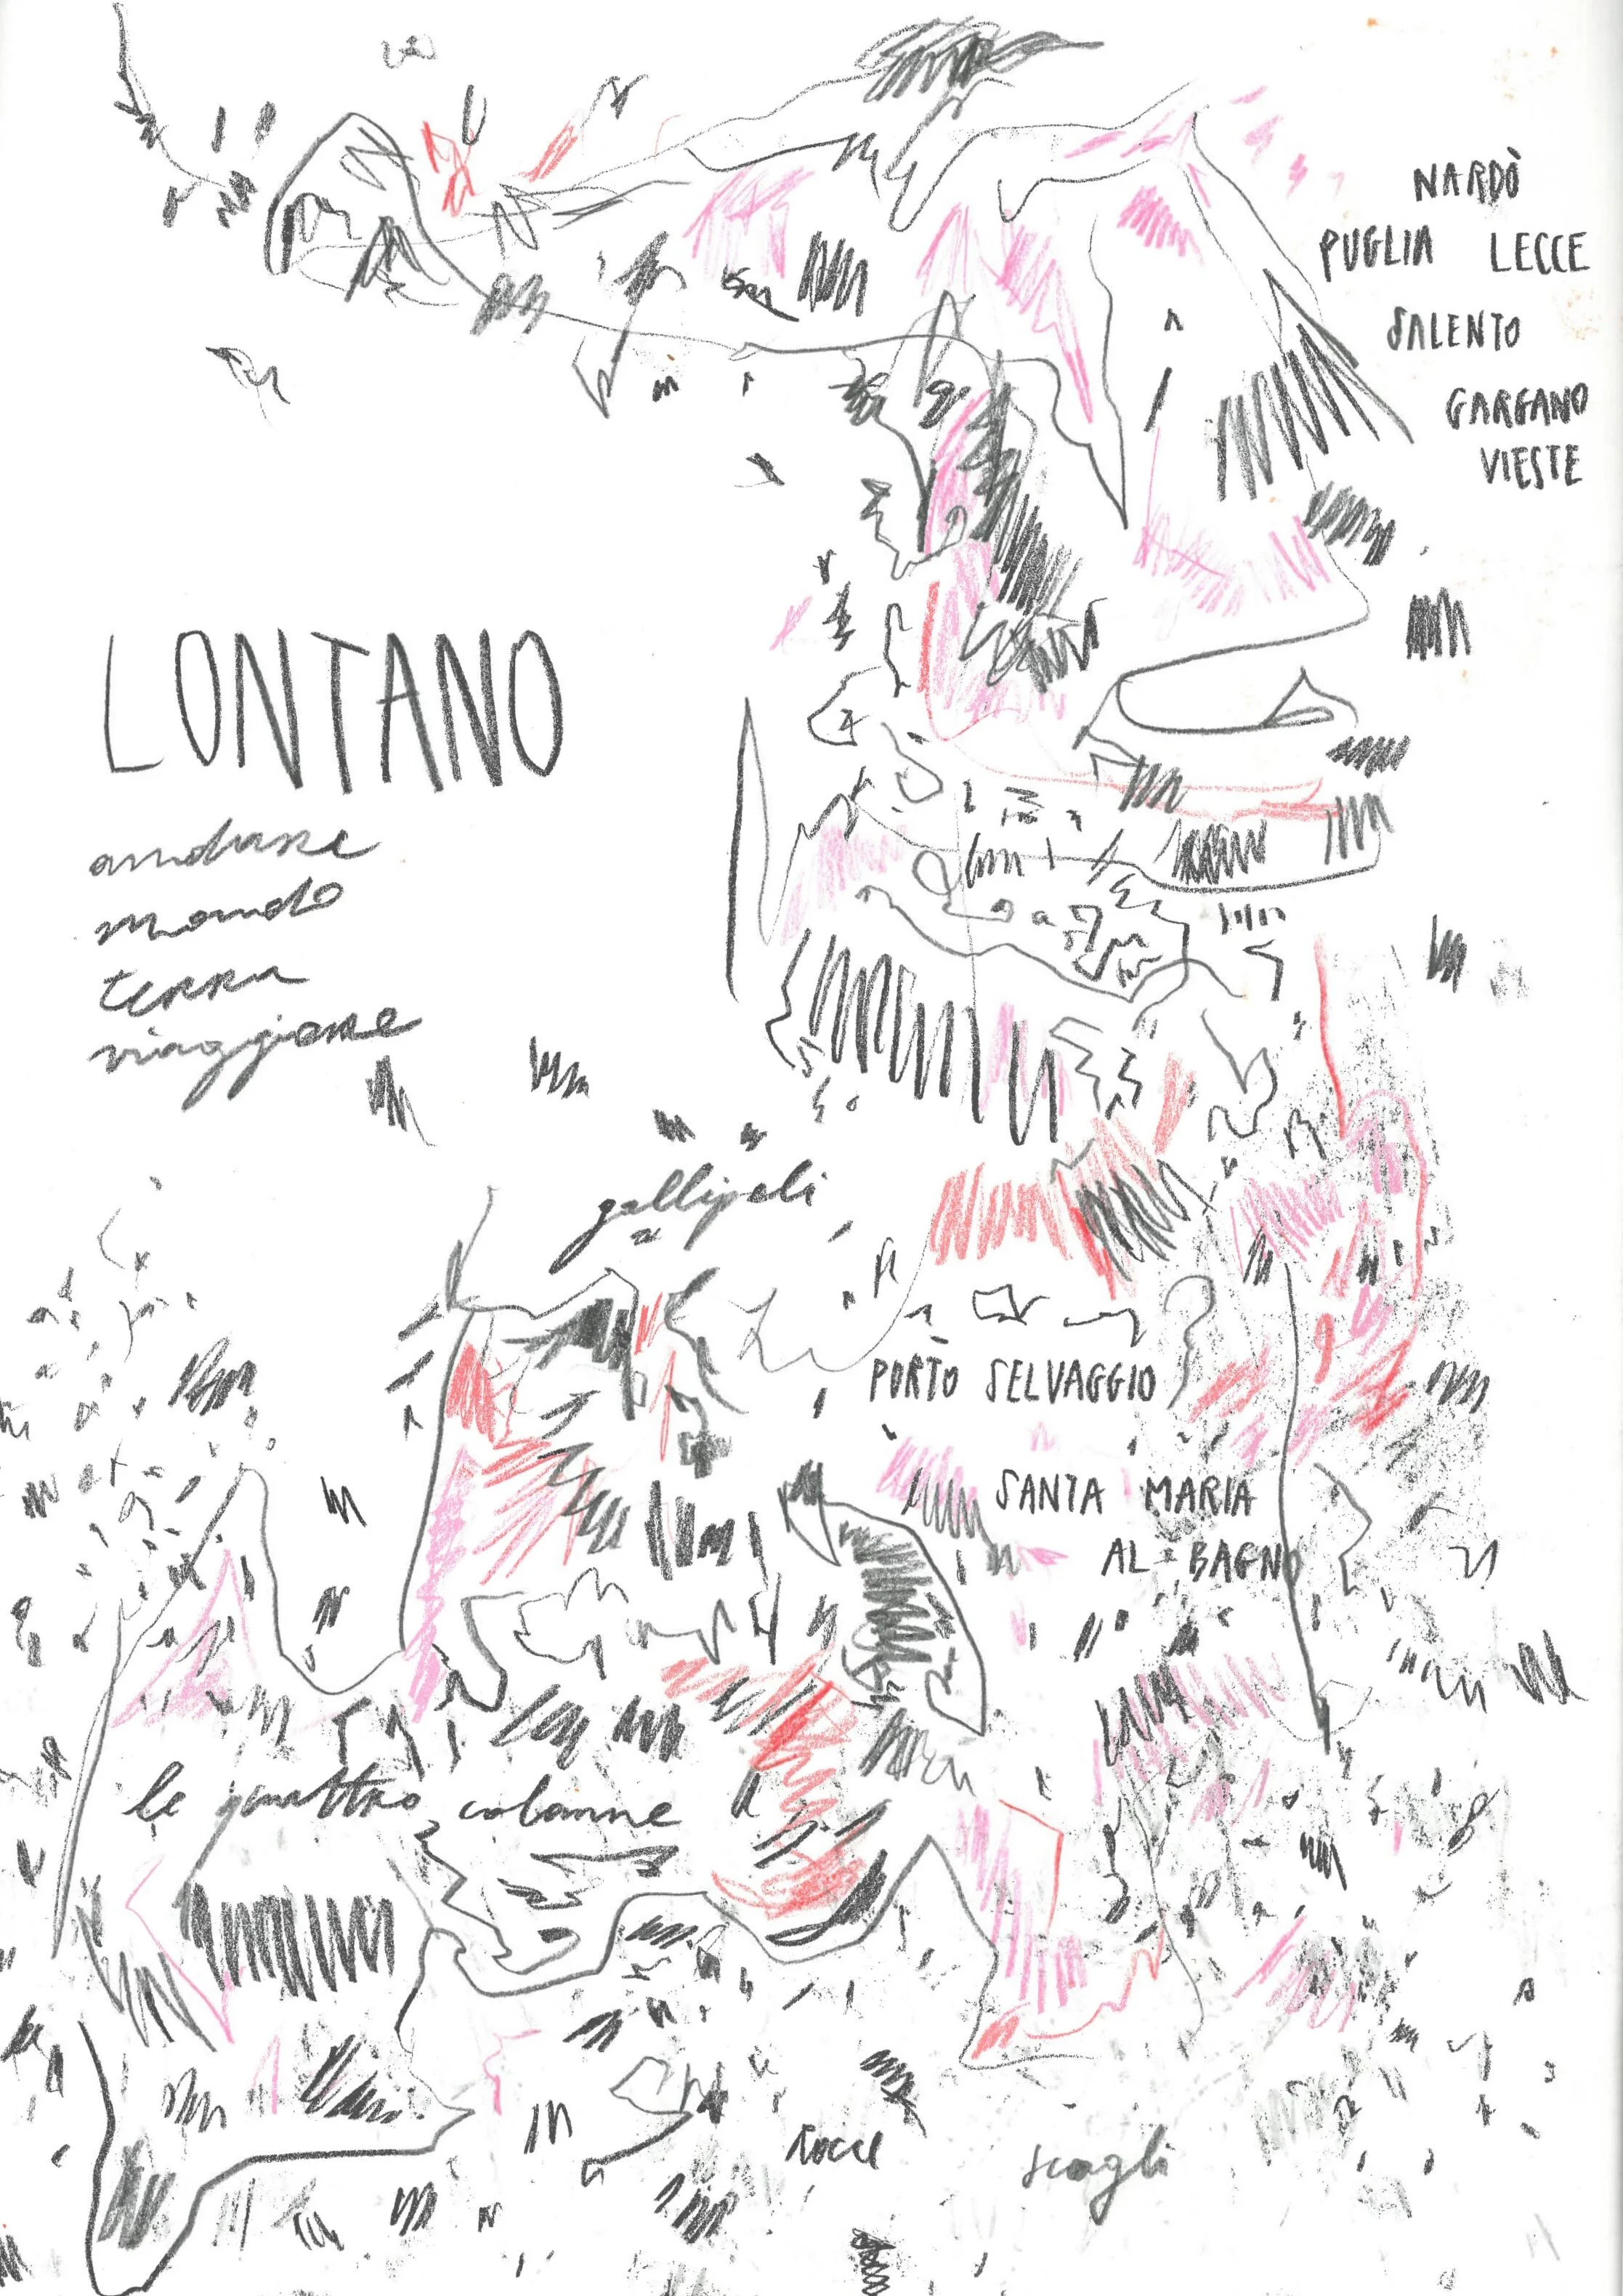 NARDÒ
PUGLIA LECCE
SALENTO
GARGANO
VIESTE
LONTANO
andare
mondo
terra
viaggiare
gallipoli
PORTO SELVAGGIO
SANTA MARIA
AL BAGNO
le quattro colonne
Rocce
scogli